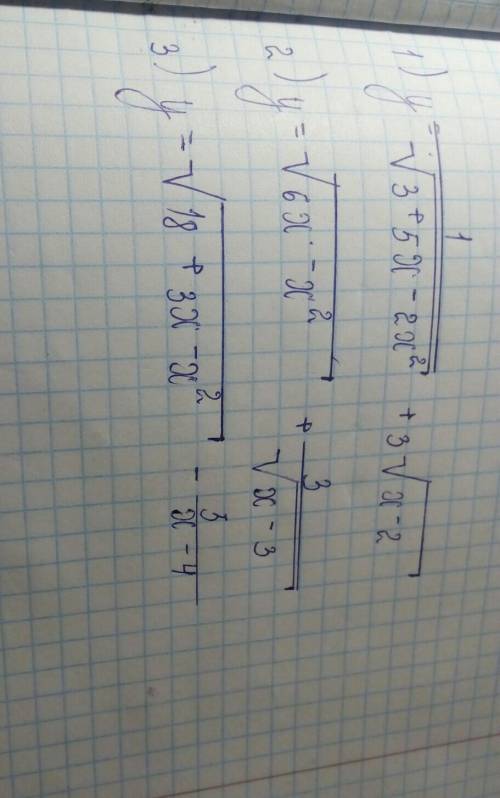 1) y = 1/√(3 + 5x - 2x²) + 3√(x - 2)
2) y = √(6x - x²) + 3/√(x - 3)
3) y = √(18 + 3x - x²) - 3/(x - 4)